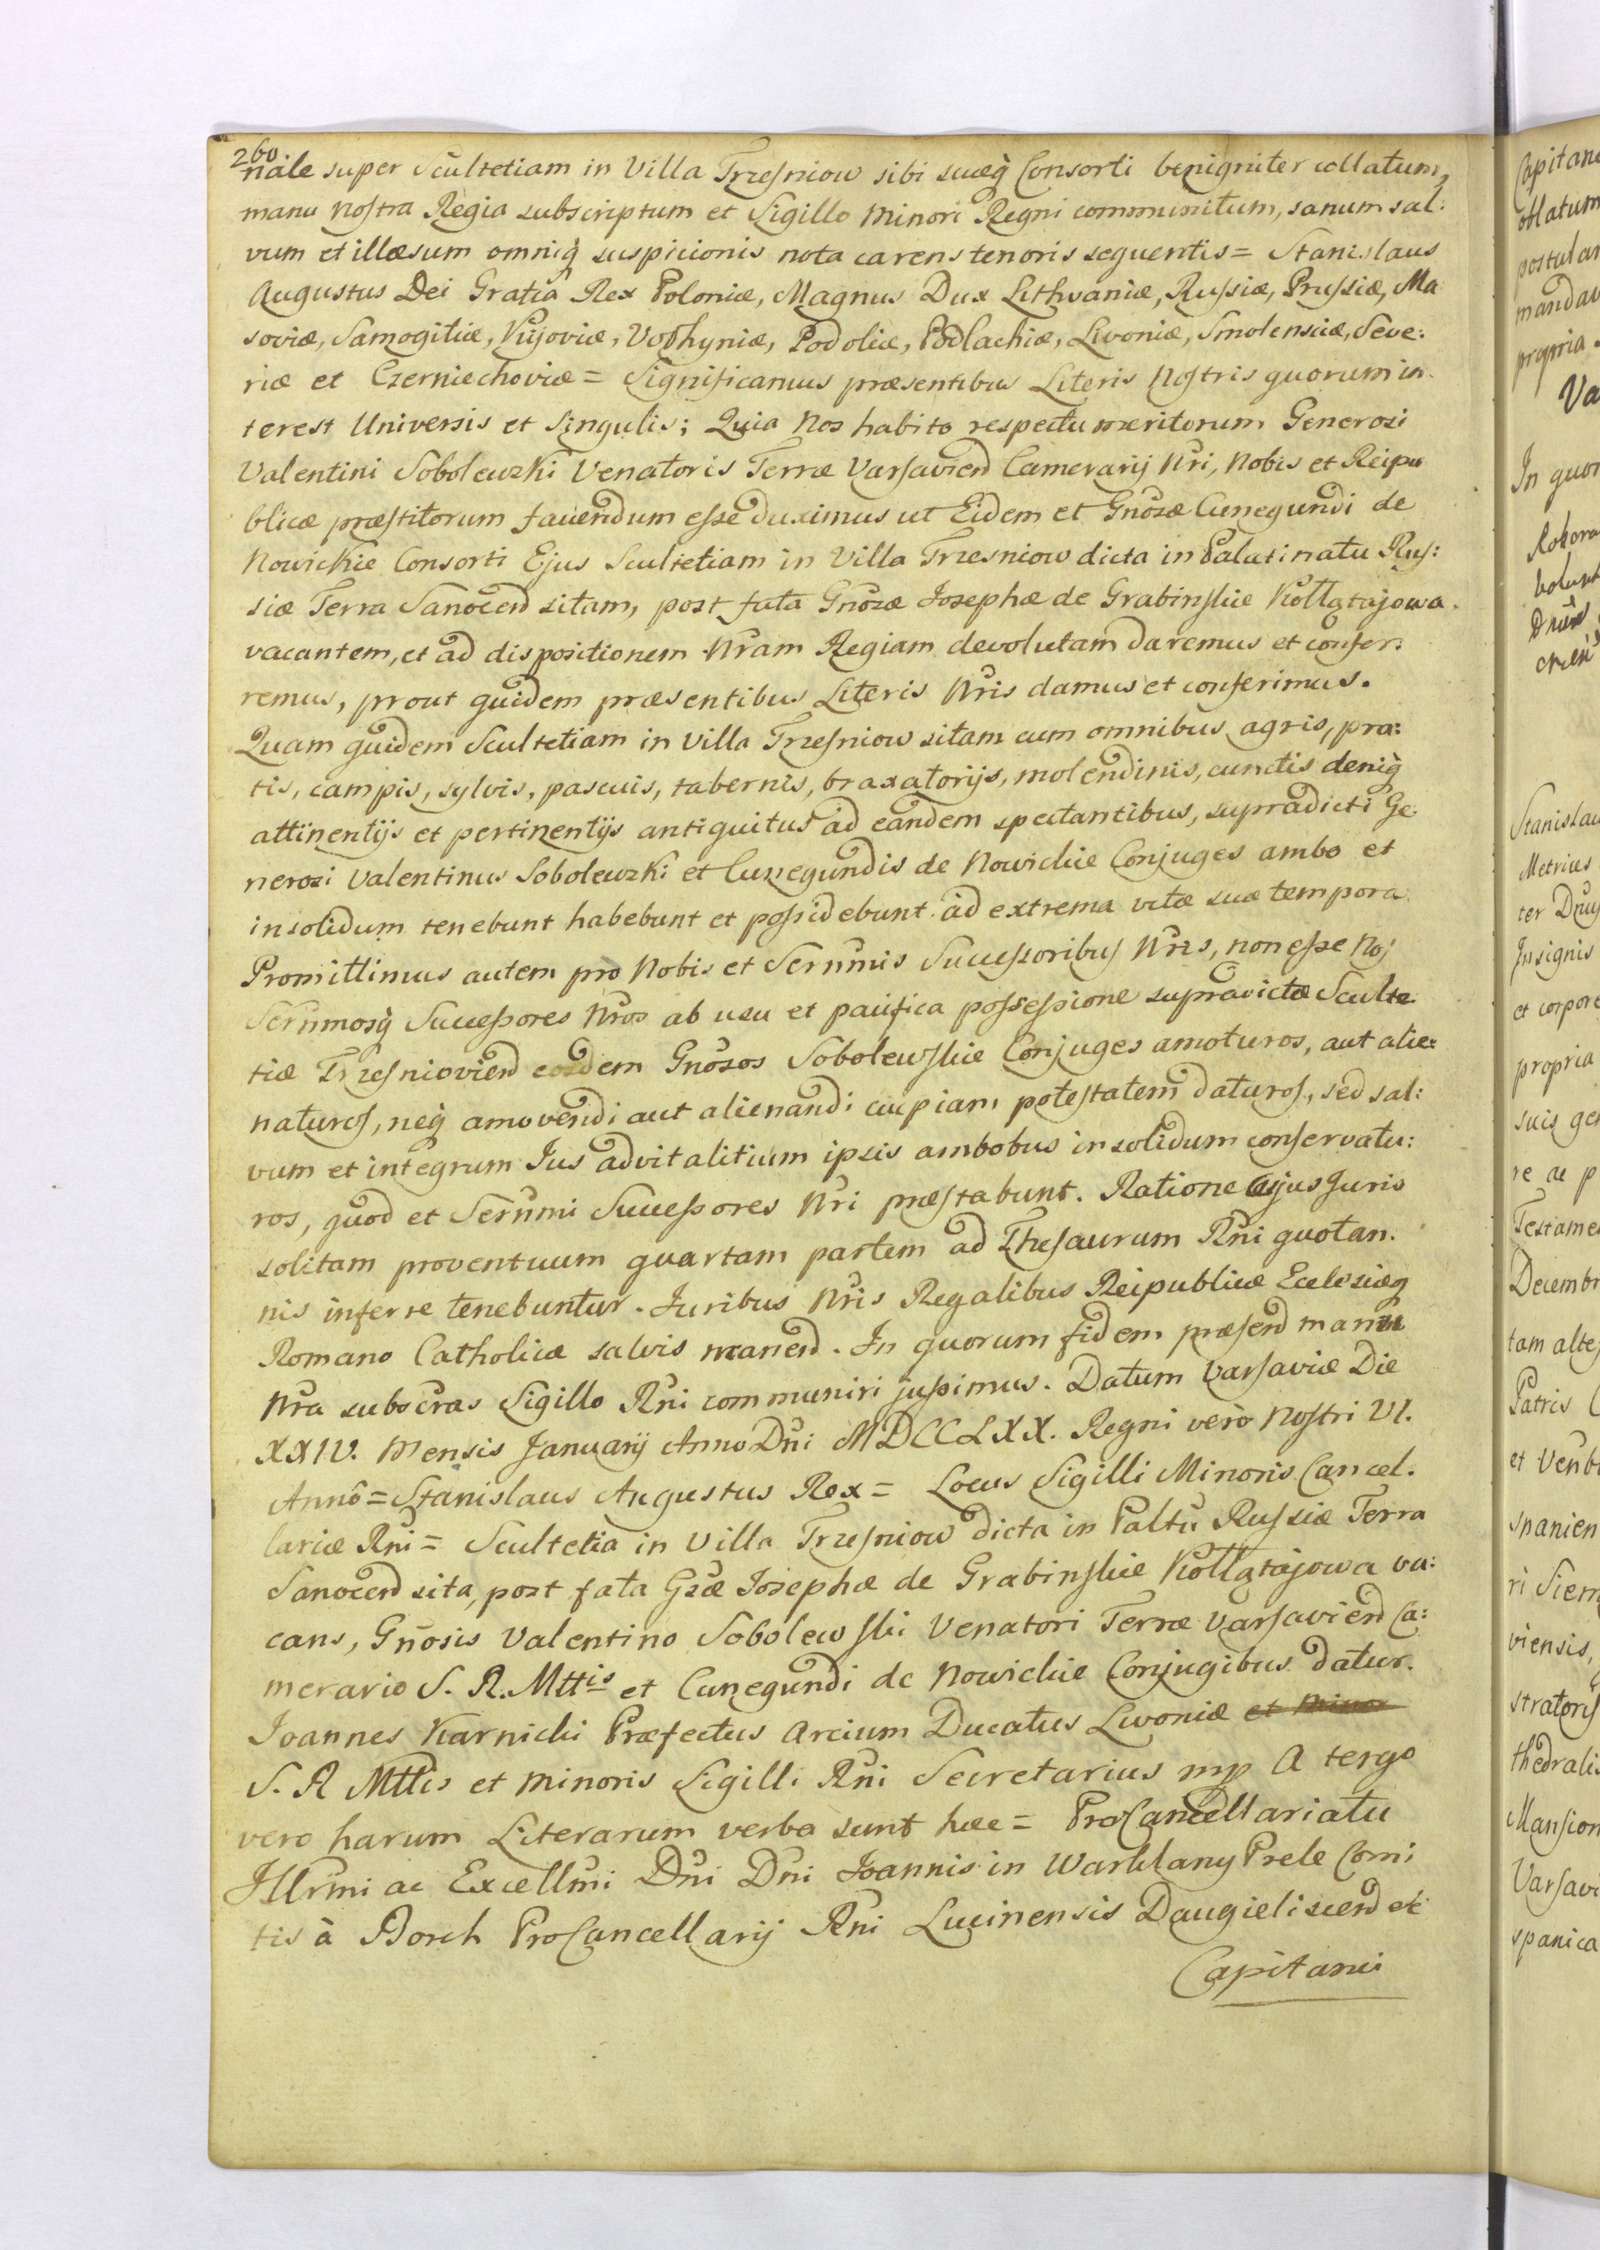 260
nale super Scultetiam in Villa Trzesniow sibi suæq̃ Consorti benigniter collatum,
manu nostra Regia subscriptum et Sigillo minori Regni communitum, sanum sal:
vum et illæsum omniq̃ suspicionis nota carens tenoris sequentis = Stanislaus
Augustus Dei Gratia Rex Poloniæ, Magnus Dux Lithvaniæ, Russiæ, Prussiæ, Ma
soviæ, Samogitiæ, Kijoviæ, Volhyniæ, Podoliæ, Podlachiæ, Livoniæ, Smolensciæ, Seve:
riæ et Czerniechoviæ = Significamus præsentibus Literis Nostris quorum in
terest Universis et Singulis; Quia Nos habito respectu meritorum Generosi
Valentini Sobolewzki Venatoris Terræ Varsavien̄ Camerarij Nri, Nobis et Reipu
blicæ præstitorum favendum esse duximus ut Eidem et Gnosæ Cunegundi de
Nowickie Consorti Ejus Scultetiam in Villa Trzesniow dicta in Palatinatu Rus:
siæ Terra Sanocen̄ sitam, post fata Gnosæ Josephæ de Grabinskie Kołłątajowa
vacantem, et ad dispositionem Nram Regiam devolutam daremus et confer:
remus, prout quidem præsentibus Literis Nris damus et conferimus.
Quam quidem Scultetiam in Villa Trzesniow sitam cum omnibus agris, pra:
tis, campis, sylvis, pascuis, tabernis, braxatorijs, molendinis, cunctis deniq̃
attinentijs et pertinentijs antiquitus ad eandem spectantibus, supradicti Ge
nerosi Valentinus Sobolewzki et Cunegundis de Nowickie Conjuges ambo et
in solidum tenebunt habebunt et possidebunt ad extrema vitæ suæ tempora
Promittimus autem pro Nobis et Serñmis Successoribus Nris, non esse Nos
Serñmosq̃ Successores Nros ab usu et pacifica possessione supradictæ Sculte
tiæ Trzesniovien̄ eosdem Gnosos Sobolewskie Conjuges amoturos, aut alie:
naturos, neq̃ amovendi aut alienandi cuipiam potestatem daturos, sed sal:
vum et integrum Jus advitalitium ipsis ambobus in solidum conservatu:
ros, quod et Serñmi Successores Nri præstabunt. Ratione cujus Juris
solitam proventuum quartam partem ad Thesaurum Rni quotan.
nis inferre tenebuntur. Juribus Nris Regalibus Reipublicæ Eclesiæq̃
Romano Catholicæ salvis manen̄. In quorum fidem præsen̄ manu
Nra subscras Sigillo Rni communiri jussimus. Datum Varsaviæ Die
XXIV. Mensis Januarij Anno Dni MDCCLXX. Regni vero Nostri VI.
Anno = Stanislaus Augustus Rex = Locus Sigilli Minoris Cancel.
lariæ Rni = Scultetia in Villa Trzesniow dicta in Paltu Russiæ Terra
Sanocen̄ sita, post fata Gsæ Josephæ de Grabinskie Kołłątajowa va:
cans, Gnosis Valentino Sobolewski Venatori Terræ Varsavien̄ Ca:
merario S. R. Mttis et Cunegundi de Nowickie Conjugibus datur.
Joannes Karnicki Præfectus Arcium Ducatus Livoniæ et Minor
S. R Mttis et minoris Sigilli Rni Secretarius mp A tergo
vero harum Literarum verba sunt hæc = ProCancellariatu
Illrmi ac Excellmi Dni Dni Joannis in Warklany Prele Comi
tis à Borch ProCancellarij Rni Lucinensis Daugieliscen̄ et
Capitanei
Capitane
oblatum
postular
mandav
propria.
Va
In quor
Stanislau
Metrices
Insignis
et corpore
propria
suis ge
re ac p
Testame
Decembr
tam alte
Patris C
viensis,
stratoris
thedralis
Mansion
Varsavi
spanica